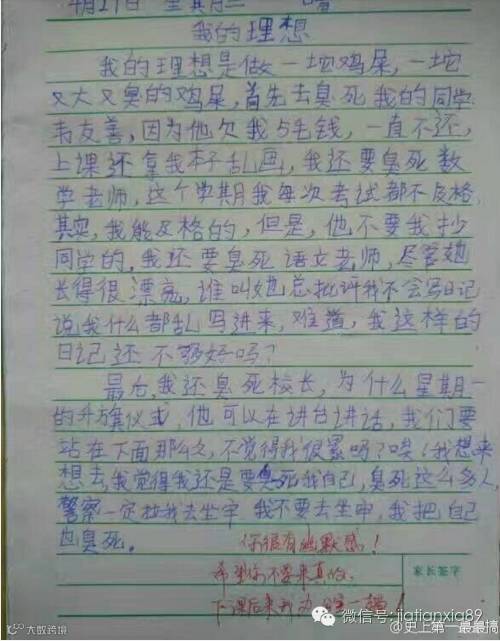 4月27日 星期三 晴
我的理想
我的理想是做一坨鸡屎,一坨
又大又臭的鸡屎,首先去臭死我的同学
韦友善,因为他欠我5毛钱,一直不还,
上课还拿我本子乱画,我还要臭死数
学老师,这个学期我每次考试都不及格,
其实,我能及格的,但是,他不要我抄
同学的,我还要臭死语文老师,尽管她
长得很漂亮,谁叫她总批评我不会写日记
说我什么都乱写进来,难道,我这样的
日记还不够好吗?
最后,我还臭死校长,为什么星期一
的升旗仪式,他可以在讲台讲话,我们要
站在下面那么久,不觉得我很累吗?唉!我想来
想去,我觉得我还是要臭死我自己,臭死这么多人,
警察一定拉我去坐牢 我不要去坐牢,我把自己
也臭死。
你很有幽默感!
希望你不要来真的。
下课后来我办公室一趟!
家长签字
大数跨境
微信号: jiatianxia89
@史上第一最最搞